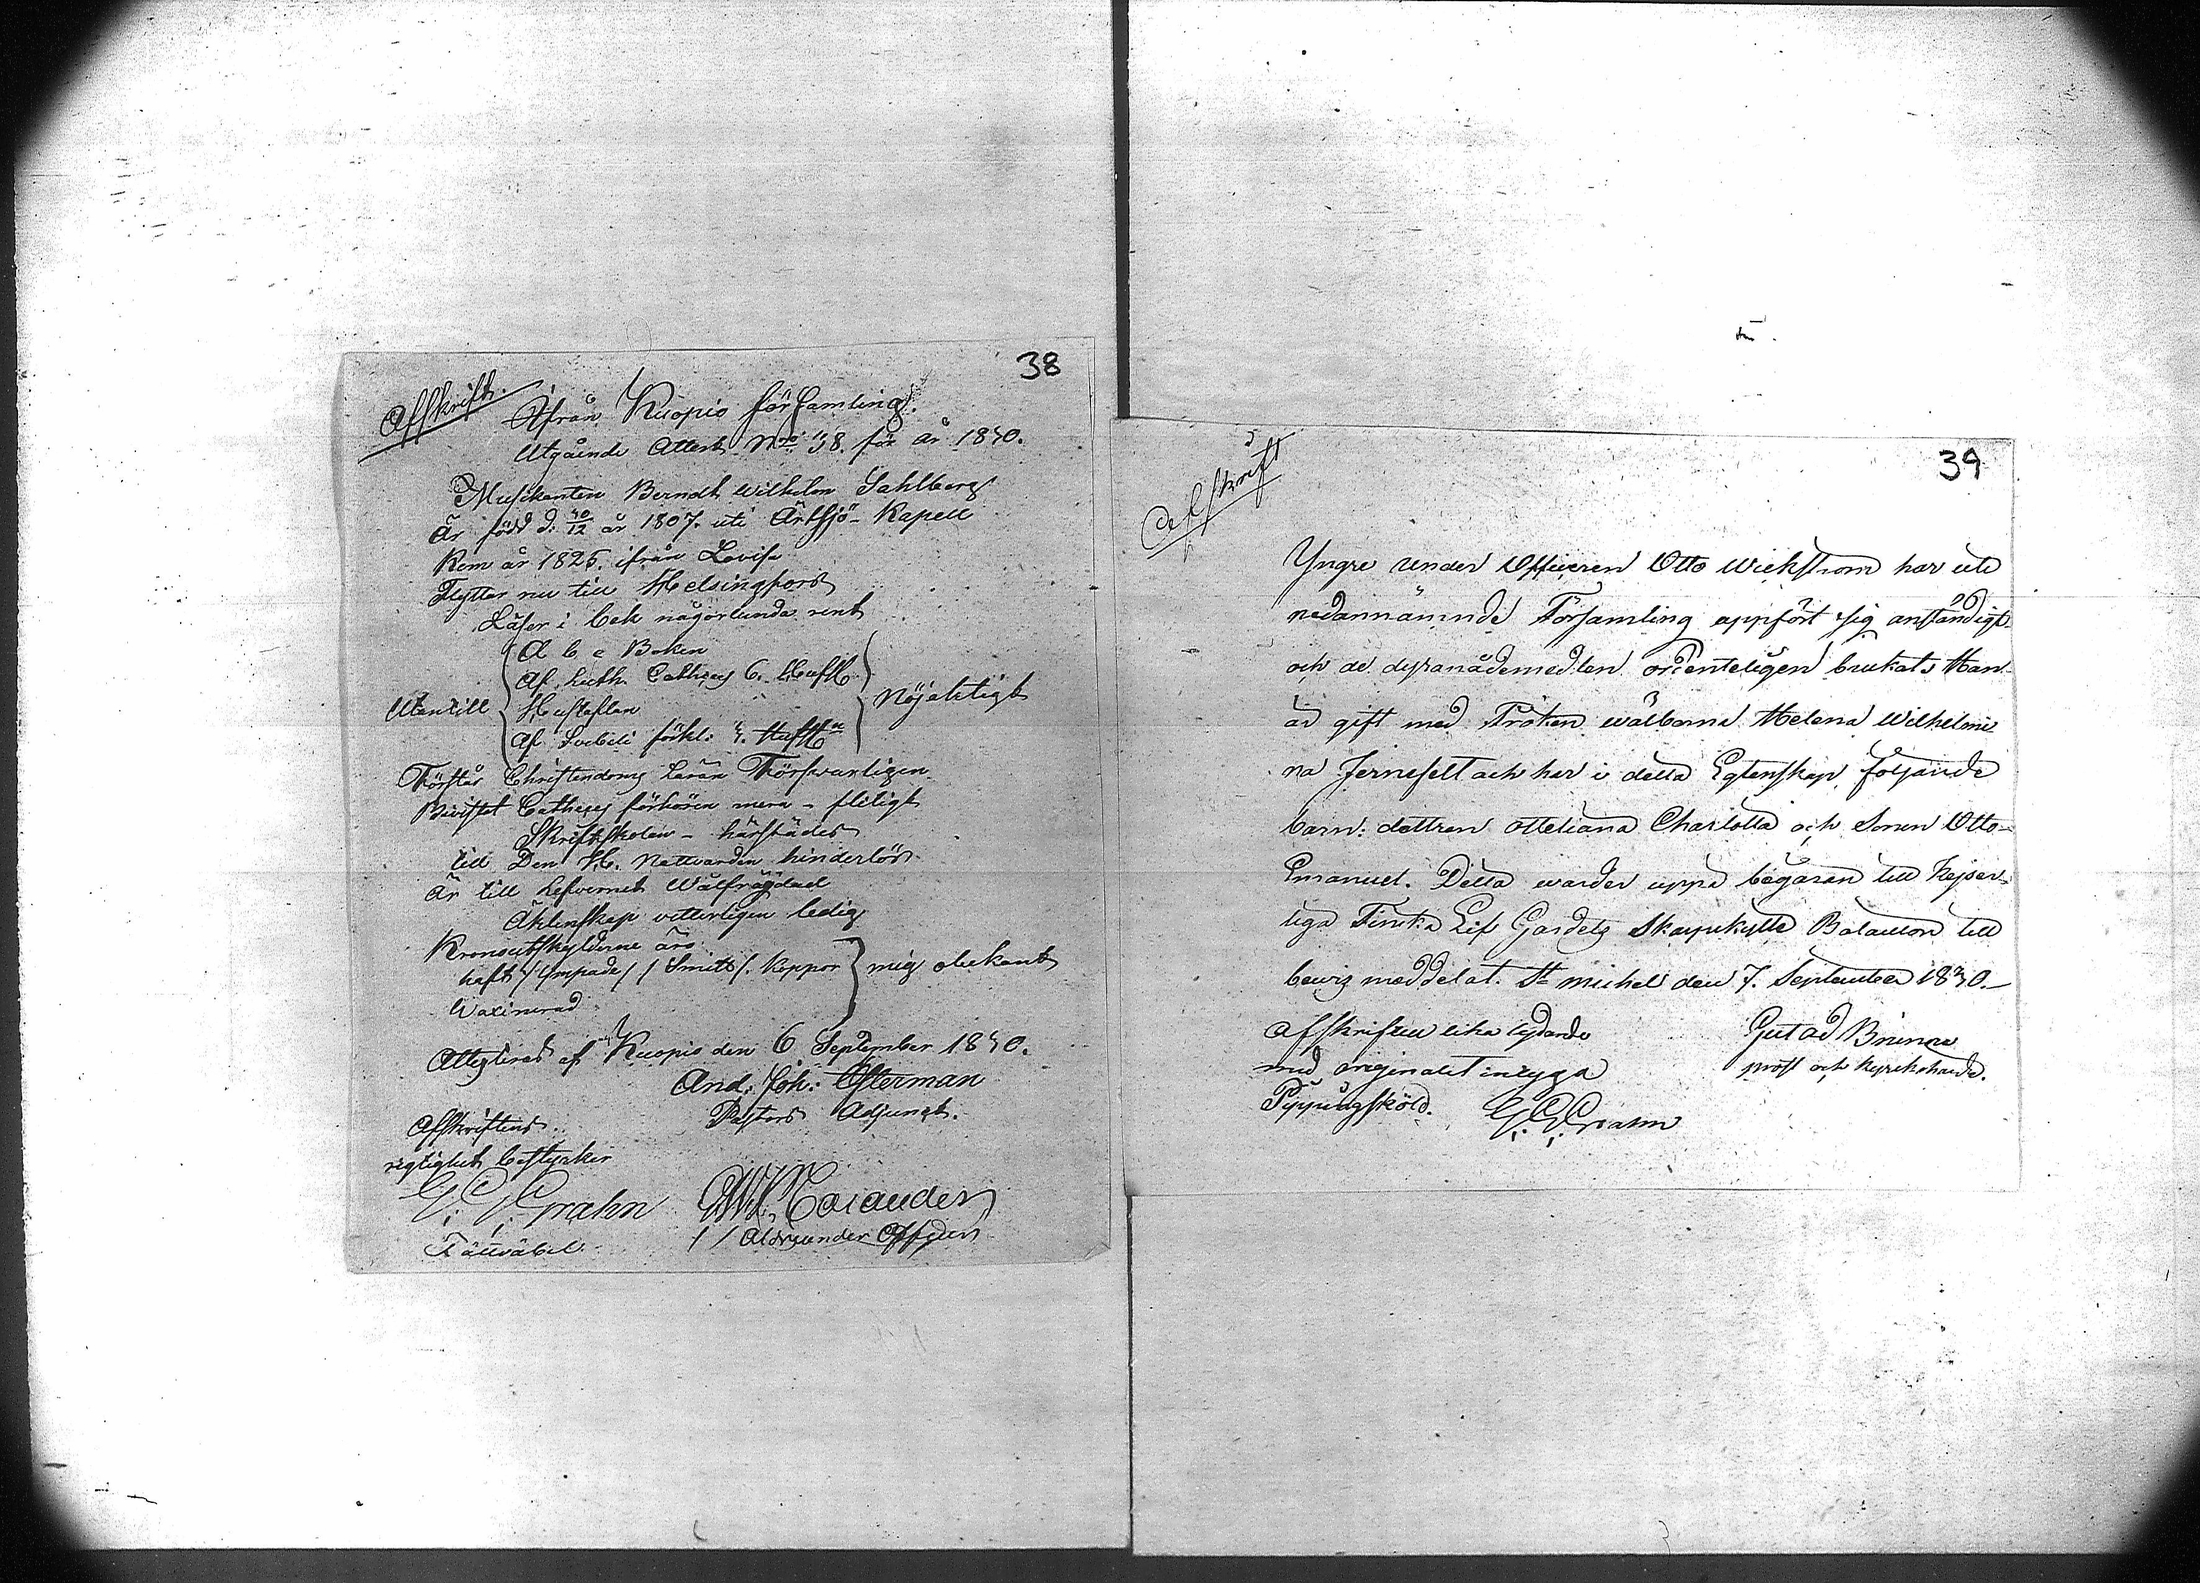 38
Afskrift.
Ifrån Kuopio församling.
Utgående Attest Nro 38. för år 1830.
Musikanten Berndt Wilhelm Sahlberg
Är född d. 30/12 år 1807. uti Ärtsjö - Kapell
Kom år 1825. ifrån Lovisa
Flyttar nu till Helsingfors
Läser i bok någorlunda rent
A b c Boken
Af Luth. Catheces 6. Hufst
Utantill Hustaflan Nöjaktigt
Af Svebeli förkl: 3. Hufstn
Förstår Christendoms Läran Försvarligen
Bivistat Catheces förhören mera - flitigt
Skriftskolan - härstädes
till Den H. Nattvarden hinderlös
Är till Lefvernet Wälfrägdad
Äktenskap vitterligen ledig
Kronoutskylderne äro
haft /ympade/ / Smitt /. Koppor mig obekant
Waxinerad
Attesteras af Kuopio den 6 September 1830.
And: Joh: Österman
Pastors Adjunct.
Afskriftens
rigtighet bestyrker
G: G: Grahn
Fältväbel
39
Afskrift
Yngre Under Officeren Otto Wickström har uti
nedannämnde Församling uppfört sig anständigt
och de dyra nådemedlen ordenteligen brukat. Han
är gift med Fröken wälborna Helena Wilhelmi-
na Jernefelt och har i detta Egtenskap följande
barn: dottren Otteliana Charlotta och Sonen Otto
Emanuel. Detta warder uppå begäran till Kejser-
liga Finska Lif Gardets Skarpskytte Bataillon till
bewis meddelat. St Michel den 7. September 1830.-
Afskriften lika lydande
med originalet intyga
Pippingsköld.
G: G: Grahn
prost och Kyrkoherde.